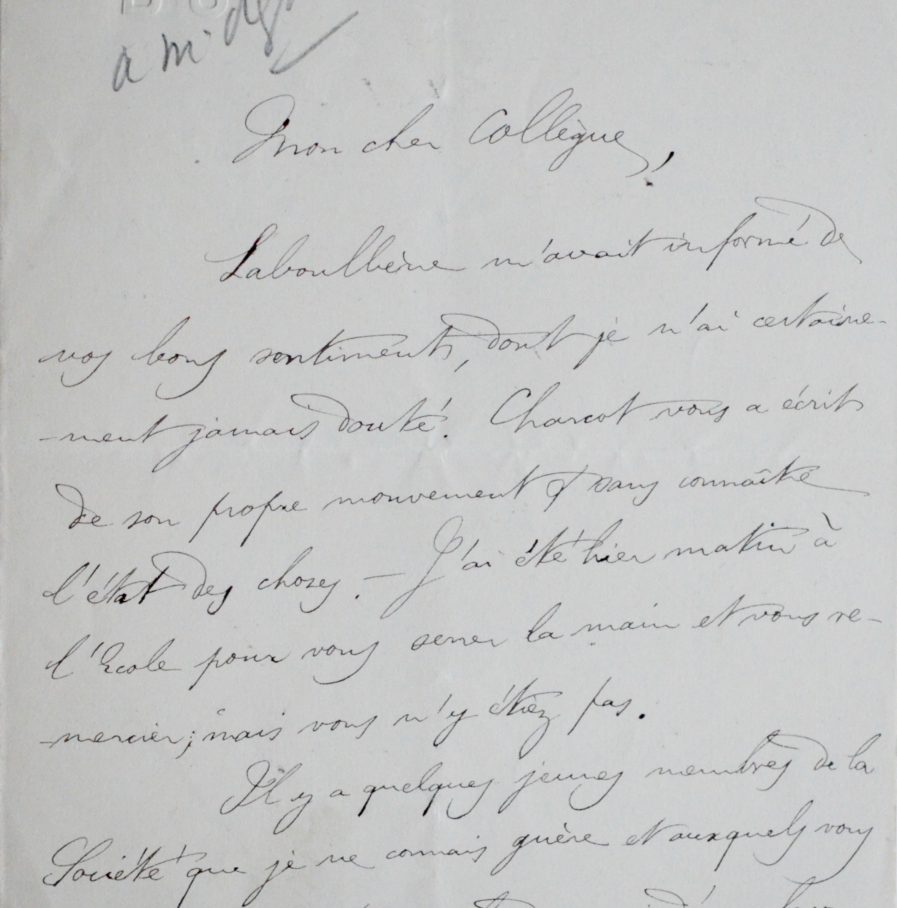 a Mr
Mon cher Collègue,
Laboulbène m'avait informé de
vos bons sentiments, dont je n'ai certaine-
-ment jamais douté. Charcot vous a écrit
de son propre mouvement & sans connaître
l'état des choses. — J'ai été hier matin à
l'Ecole pour vous serrer la main et vous re-
-mercier; mais vous n'y étiez pas.
Il y a quelques jeunes membres de la
Société que je ne connais guère et auxquels vous